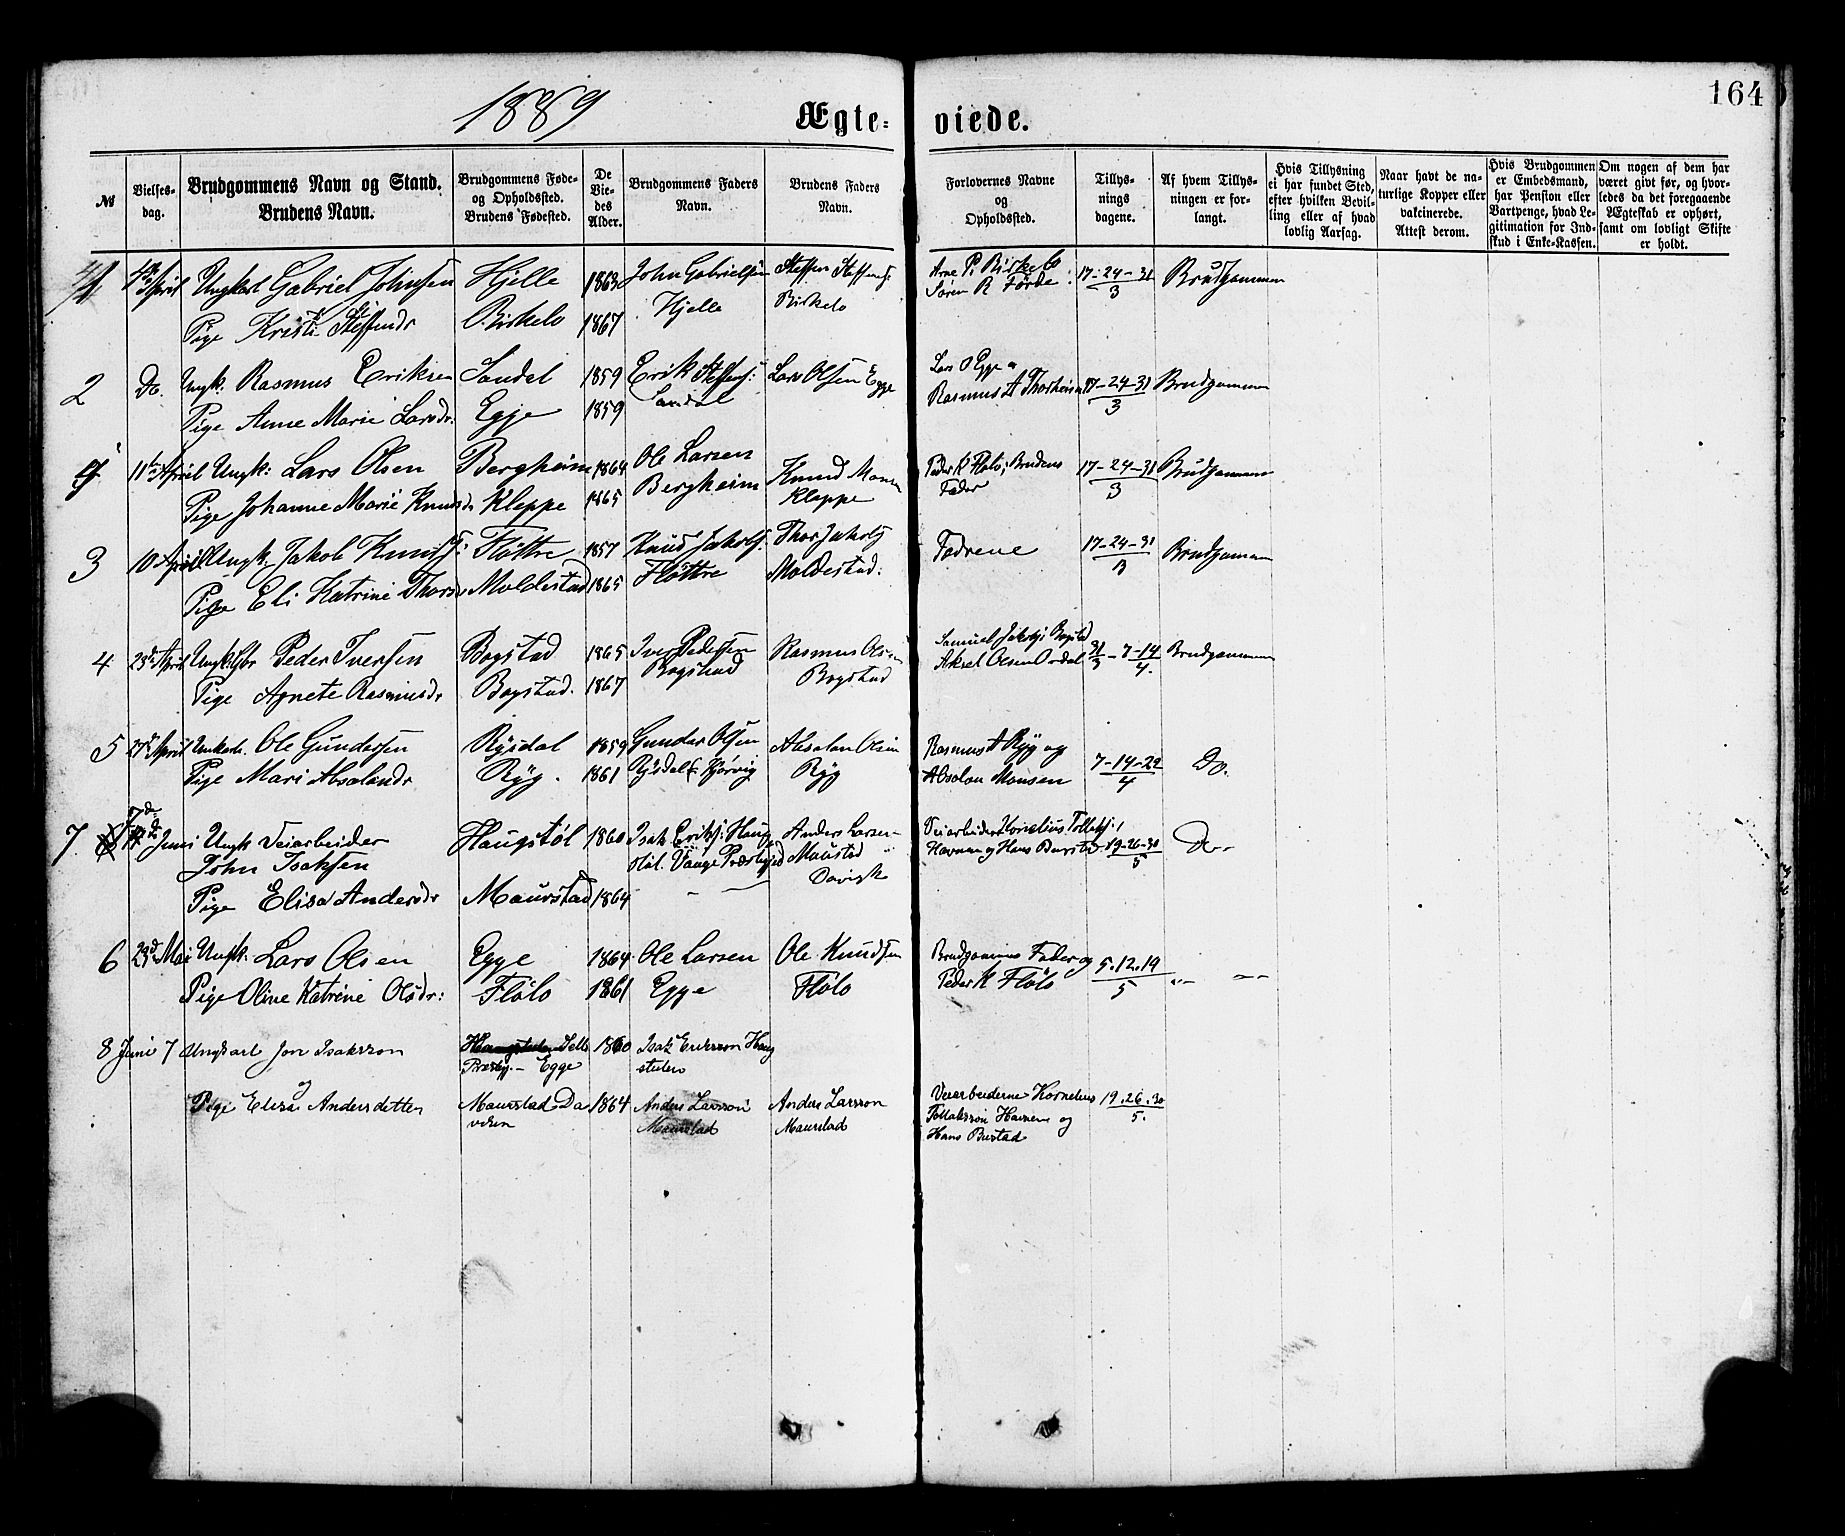 164
1889
Ægte- viede.
№
Vielses-
dag.
Brudgommens Navn og Stand.
Brudens Navn.
Brudgommens Føde-
og Opholdssted.
Brudens Fødested.
De
Vie-
des
Alder.
Brudgommens Faders
Navn.
Brudens Faders
Navn.
Forlovernes Navne
og
Opholdssted.
Tillys-
nings
dagene.
Af hvem Tillys-
ningen er for-
langt.
Hvis Tillysning
ei har fundet Sted,
efter hvilken Bevil-
ling eller af hvad
lovlig Aarsag.
Naar havt de na-
turlige Kopper eller
vakcinerede.
Attest derom.
Hvis Brudgommen
er Embedsmand,
har Pension eller
Vartpenge, hvad Le-
gitimation for Ind-
skud i Enke-Kassen.
Om nogen af dem har
været givt før, og hvor-
ledes da det foregaaende
Ægteskab er ophørt,
samt om lovligt Skifte
er holdt.
1 April Ungkarl Gabriel Johnsen Hjelle 1863 John Gabrielsen Steffen Steffens: Arne P. Birkelo 17-24-31 Brudgommen
Hjelle Birkelo Søren R Førde 3
Pige Kristi Steffensdr Birkelo 1867
2 Do. Ungk. Rasmus Eriksen Sandal 1859 Erik Steffens: Lars Olsen Egge Lars O Egge og 17-24-31 Brudgommen
Pige Anne Marie Larsdr. Egje 1859 Sandal Rasmus A Thorheim 3
11te April Ungk: Lars Olsen Bergheim 1864 Ole Larsen Knud Monsen Peder K Fløto; Brudens 17-24-31 Brudgommen
Pige Johanne Marie Knudsdr Kleppe 1865 Bergheim Kleppe Fader 3
3 10 April Ungk. Jakob Knudsf: Fløttre 1857 Knud Jakobs: Thor Jakobs Fædrene 17-24-31 Brudgommen
Pige Eli Katrine Thorsdr Moldestad 1865 Fløttre Moldestad: 3
4 23de April Ungk. Peder Iversen Bogstad 1865 Iver Pedersen Rasmus Olsen Samuel Jakobs: Bogstad 31/3-7-14 Brudgommen
Pige Agnete Rasmusdr Bogstad. 1867 Bogstad Bogstad Aksel Olsen Ordal 4.
5 27de April Unkarl. Ole Gundersen Rysdal 1859 Gunder Olsen Absalon Olsen Rasmus A Ryg og 7-14-22 Do.
Pige Mari Absalondr Ryg. 1861 Rysdal Ryg Absalon Monsen 4
7 7de Juni Ungk Veiarbeider Haugstøl 1860 Isak Eriks: Haug Anders Larsen Veiarbeidere Kornelius Tollaks: Do
John Isaksen støl. Vange Præstegjed Maurstad Havnen og Hans Burstad. 19-26-30
Davigk 5
Pige Elisa Andersdr Maurstad 1864
6 23de Mai Ungk. Lars Olsen Egge 1864 Ole Larsen Ole Knudsen Brudgommens Fader og 5.12.19
Pige Oline Katrine Olsdr: Fløto 1861 Egge Fløto Peder K Fløto 5
8 Juni 7 Ungkarl Jon Isaksson 1860 Isak Eriksson Haug
Prestgj. - Egge stulen
og
Pige Elisa Andersdotter Maurstad Da 1864 Anders Larsson Anders Larsson Veiarbeiderne Kornelius 19.26.30
viken Maurstad Maurstad Tollaksson Havnen og 5.
Hans Burstad